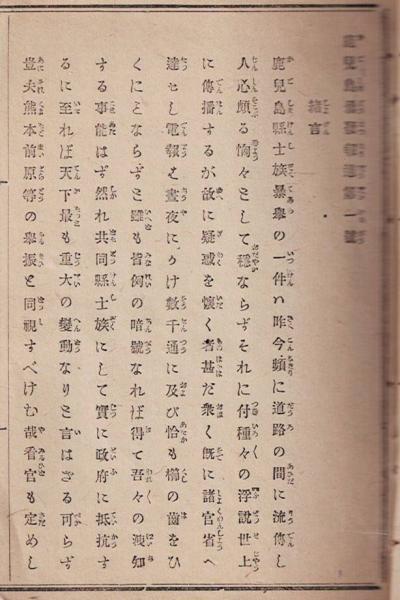 鹿兒島
第一號
緒言
鹿兒島縣士族暴擧の一件ハ昨今頻に道路の間に流傳し
人心頗る恟々として穩ならずそれに付種々の浮説世上
に傳播するが故に疑惑を懷く者甚だ衆く既に諸官省へ
達せし電報も晝夜にかけ數千通に及び恰も櫛の齒をひ
くにことならずと雖も皆例の暗號なれば得て吾々の洩知
する事能はず然れ共同縣士族にして實に政府に抵抗す
るに至れば天下最も重大の變動なりと言はざる可らず
豈夫熊本前原等の擧振と同視すべけむ哉看官も定めし